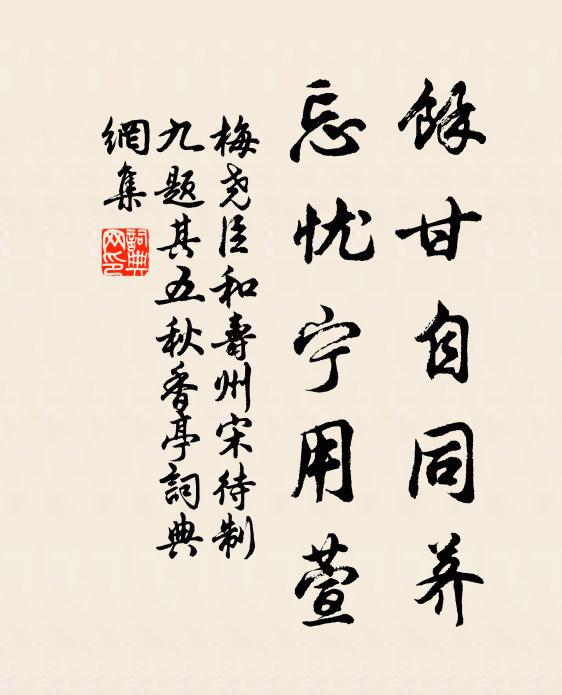 餘甘自同荠
忘忧宁用萱
梅尧臣和壽州宋待制
九题其五秋香亭詞典
網集
詞典
网印